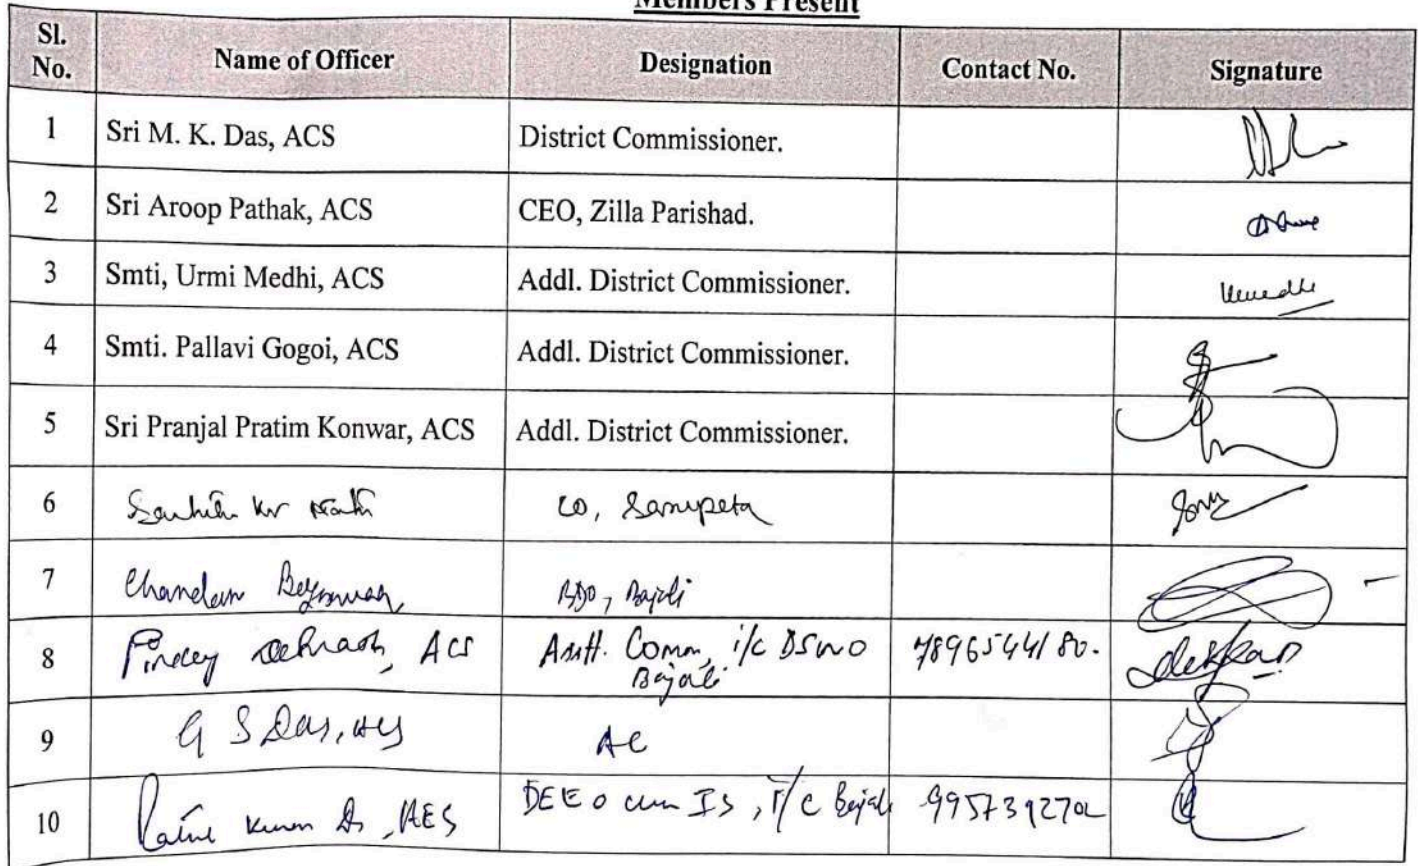 Members Present
Sl. No. Name of Officer Designation Contact No. Signature
1 Sri M. K. Das, ACS District Commissioner.
2 Sri Aroop Pathak, ACS CEO, Zilla Parishad.
3 Smti, Urmi Medhi, ACS Addl. District Commissioner.
4 Smti. Pallavi Gogoi, ACS Addl. District Commissioner.
5 Sri Pranjal Pratim Konwar, ACS Addl. District Commissioner.
6 Kr CO, Sarupeta
7 Chandan BDO, Bajali
8 ACS Asstt. Comm, i/c DSWO
Bajali
9 G S Das, ACS AC
10 Kumar Das, AES DEEO cum IS, I/C Bajali